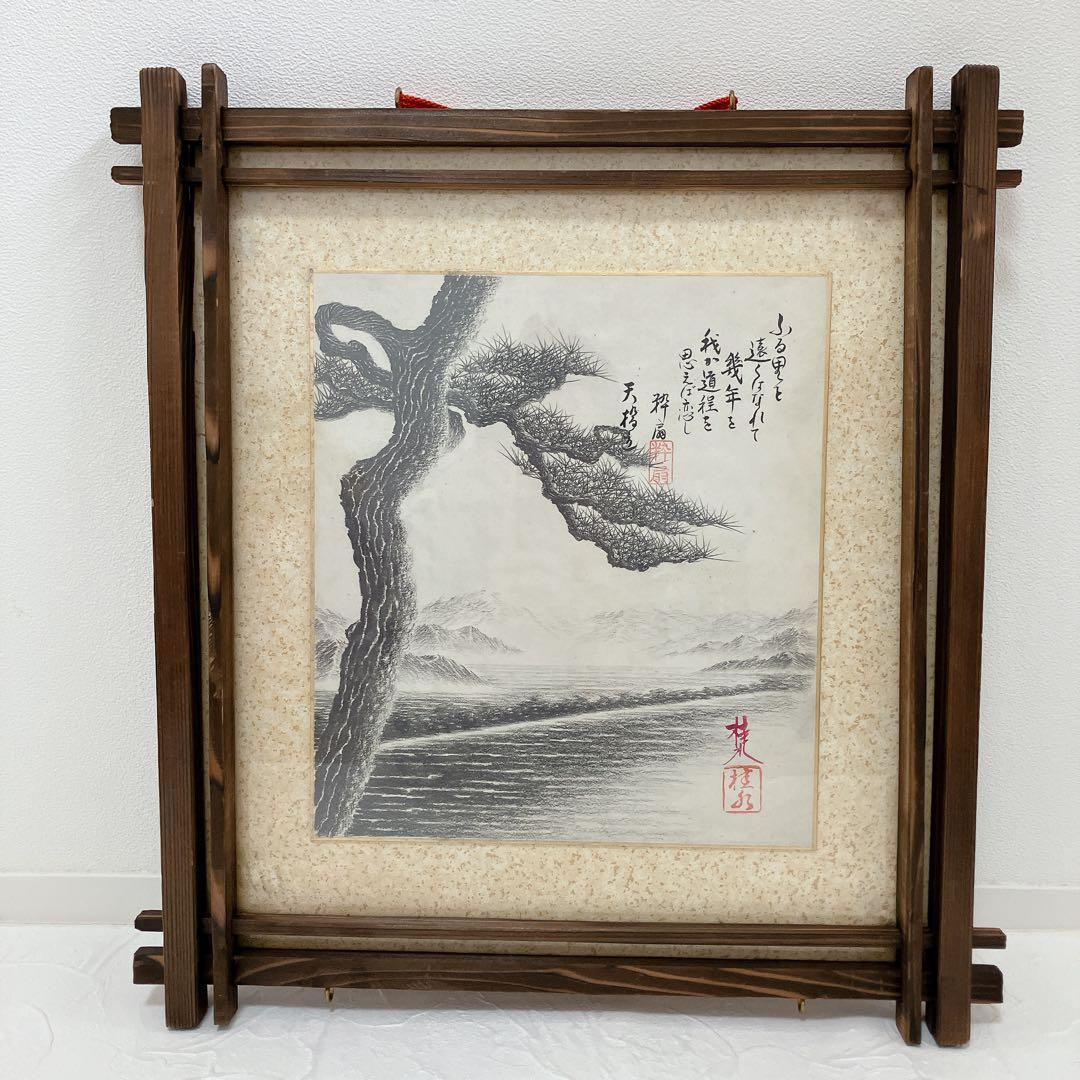 ふる里を
遠くはなれて
幾年を
我が道程を
思えば恋し
粋扇
天橋立
粋扇
桂水
桂水